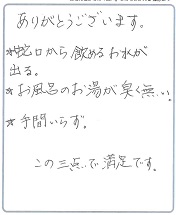 ありがとうございます。
*蛇口から飲めるお水が
出る。
*お風呂のお湯が臭く無い。
*手間いらず。
この三点で満足です。